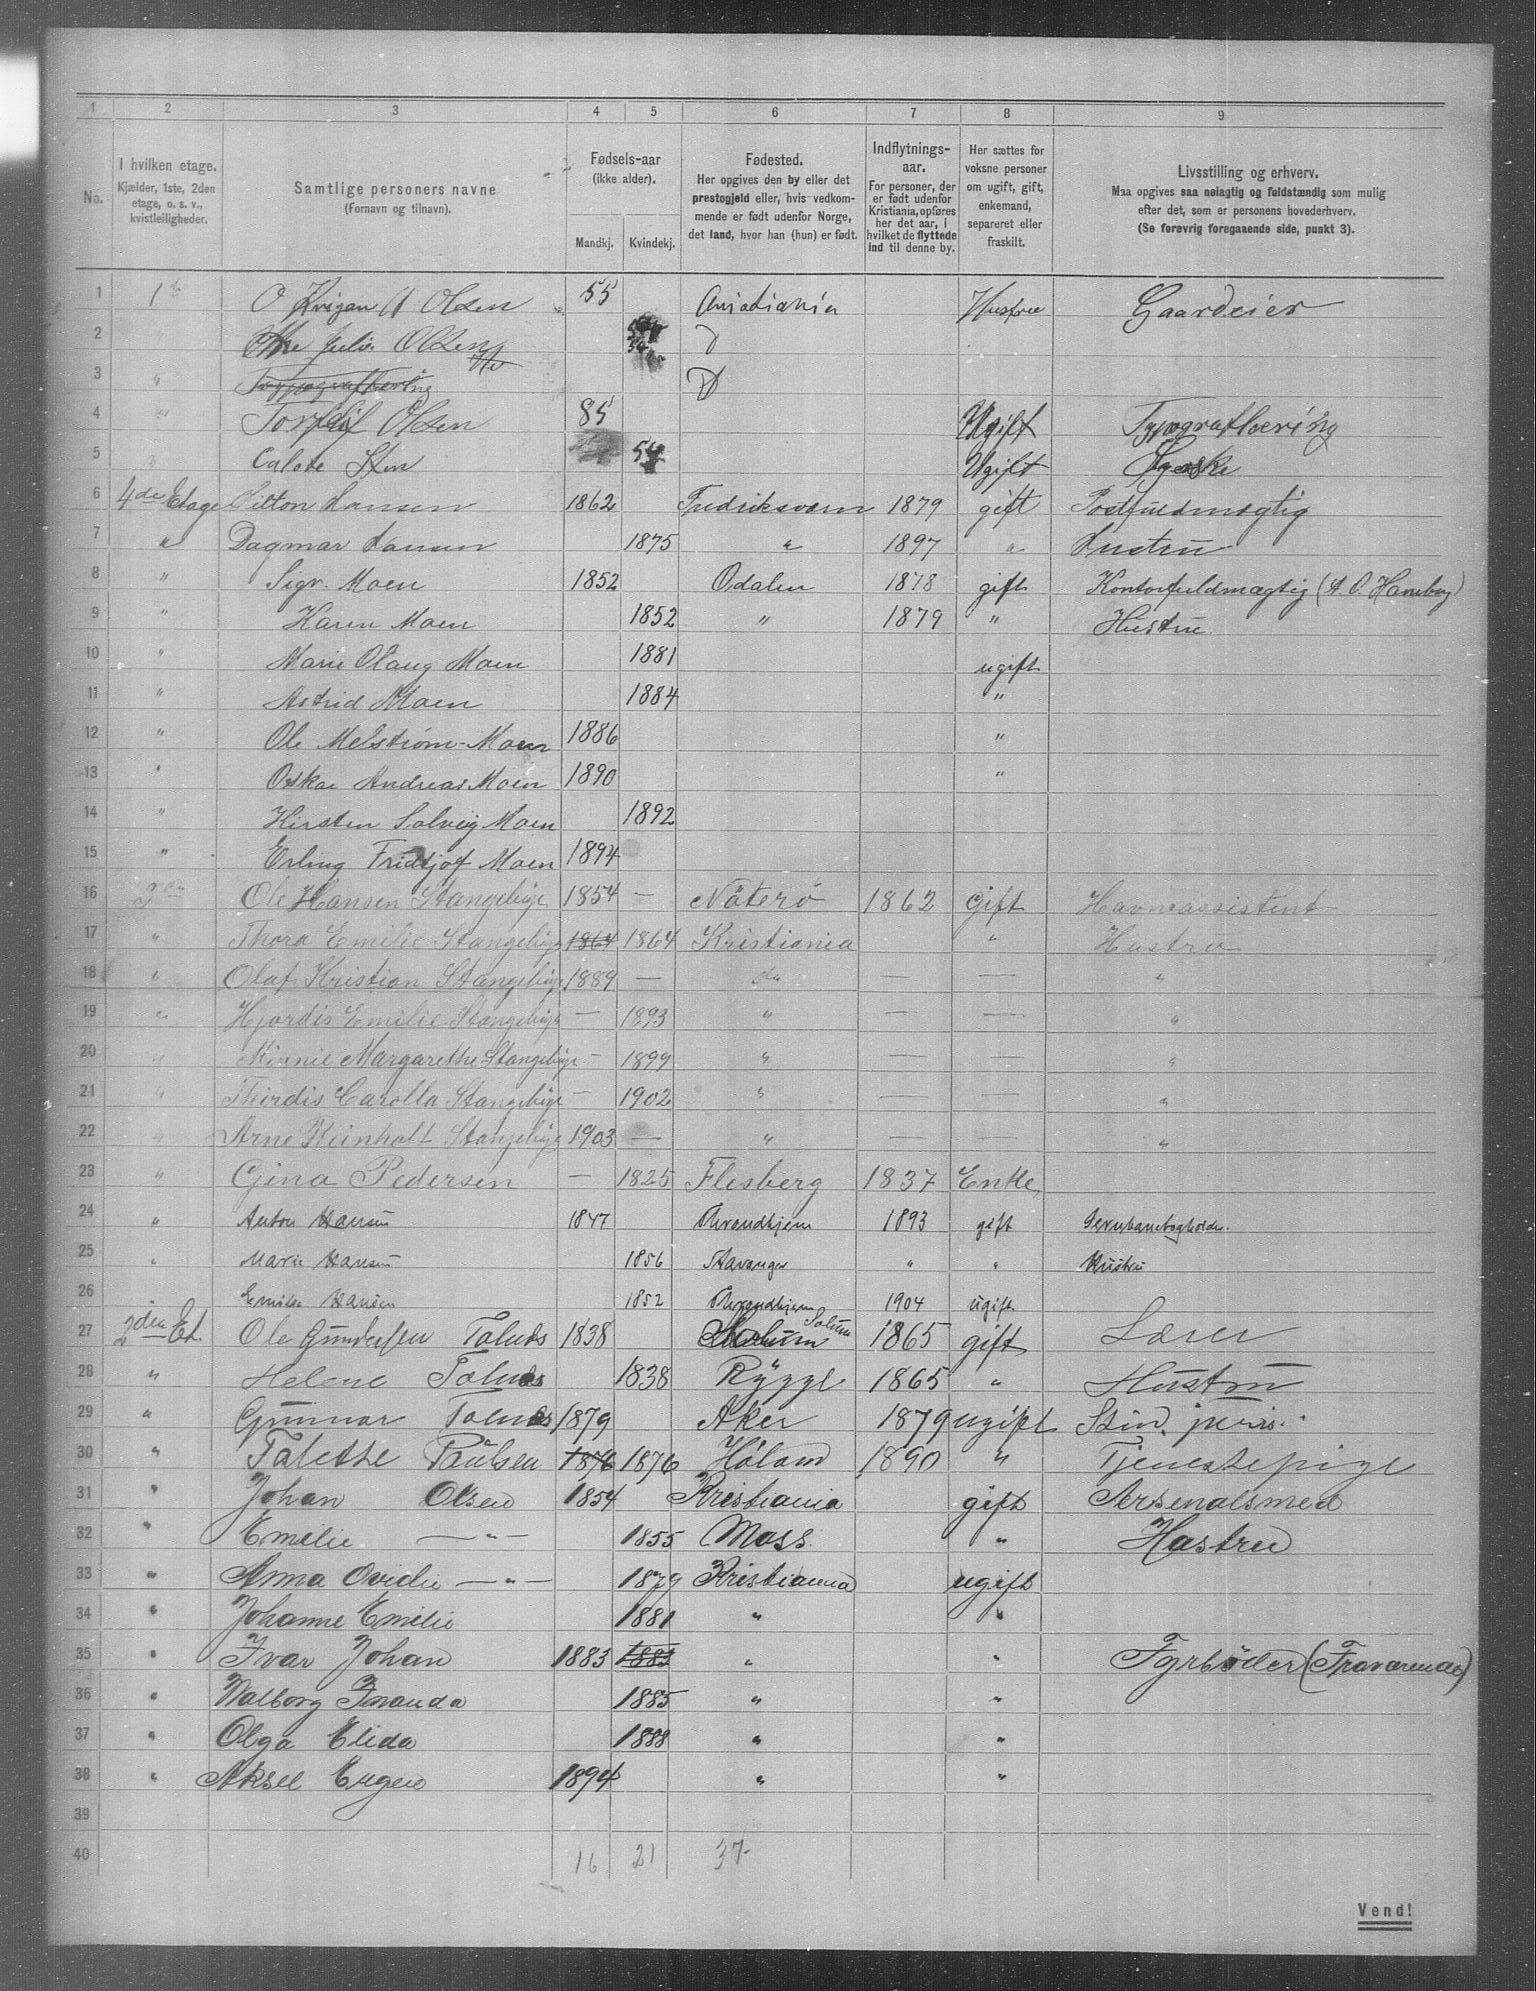 1 2 3 4 5 6 7 8 9
No. I hvilken etage. Kjælder, 1ste, 2den etage, o. s. v., kvistleiligheder. Samtlige personers navne (Fornavn og tilnavn). Fødsels-aar (ikke alder). Mandkj. Kvindekj. Fødested. Her opgives den by eller det prestegjeld eller, hvis vedkommende er født udenfor Norge, det land, hvor han (hun) er født. Indflytnings-aar. For personer, der er født udenfor Kristiania, opføres her det aar, i hvilket de flyttede ind til denne by. Her sættes for voksne personer om ugift, gift, enkemand, separeret eller fraskilt. Livsstilling og erhverv. Maa opgives saa nøiagtig og fuldstændig som mulig efter det, som er personens hovederhverv. (Se forøvrig foregaaende side, punkt 3).
1 O Olsen 55 Gaardeier
2 Julie Olsen 54
3 "
4 " Olsen 85 Ugift
5 54 Ugift
6 4de Etage Hansen 1862 Fredriksværn 1879 gift Postfuldmægtig
7 " Dagmar Hansen 1875 " 1897 " Hustru
8 " Sigv. Moen 1852 Odalen 1878 gift Kontorfuldmægtig
9 " Karen Moen 1852 " 1879 " Hustru
10 " Marie Olaug Moen 1881 ugift
11 " Astrid Moen 1884 "
12 " Ole Melstrøm-Moen 1886 "
13 " Oskar Andreas Moen 1890 "
14 " Kirsten Solveig Moen 1892
15 " Erling Fridtjof Moen 1894
16 3die Ole Hansen Stangebye 1854 — Nøterø 1862 Gift Havneassistent
17 " Thora Emilie Stangebye 1864 1864 Kristiania " Hustru
18 " Olaf Kristian Stangebye 1889 — do — — "
19 " Hjordis Emilie Stangebye — 1893 " — — "
20 " Minnie Margarethe Stangebye — 1899 " — — "
21 " Thordis Carolla Stangebye — 1902 " — — "
22 " Arne Reinholt Stangebye 1903 — " — — "
23 " Gina Pedersen — 1825 Flesberg 1837 Enke
24 " Anton Hansen 1847 Throndhjem 1893 gift Jernbanebogholder.
25 " Marie Hansen 1856 Stavanger " " Hustru
26 " Emilie Hansen 1852 Throndhjem 1904 ugift
27 2den Et. Ole Gundersen 1838 Solum 1865 gift Lærer
28 " Helene 1838 Rygge 1865 " Hustru
29 " Gunnar 1879 Aker 1879 ugift Stud. juris.
30 " Talette Paulsen 1876 1876 Høland 1890 " Tjenestepige
31 " Johan Olsen 1854 Kristiania gift Arsenalsmed
32 " Emilie — " — 1855 Moss. " Hustru
33 " Anna Ovidie — " — 1879 Kristiania ugift
34 " Johanne Emilie 1881 " "
35 " Ivar Johan 1883 1883 " " Fyrbøder (Fraværende)
36 " Valborg 1885 " "
37 " Olga Elida 1888 " "
38 " Aksel Eugen 1894 " "
39
40 16 21 37
Vend!